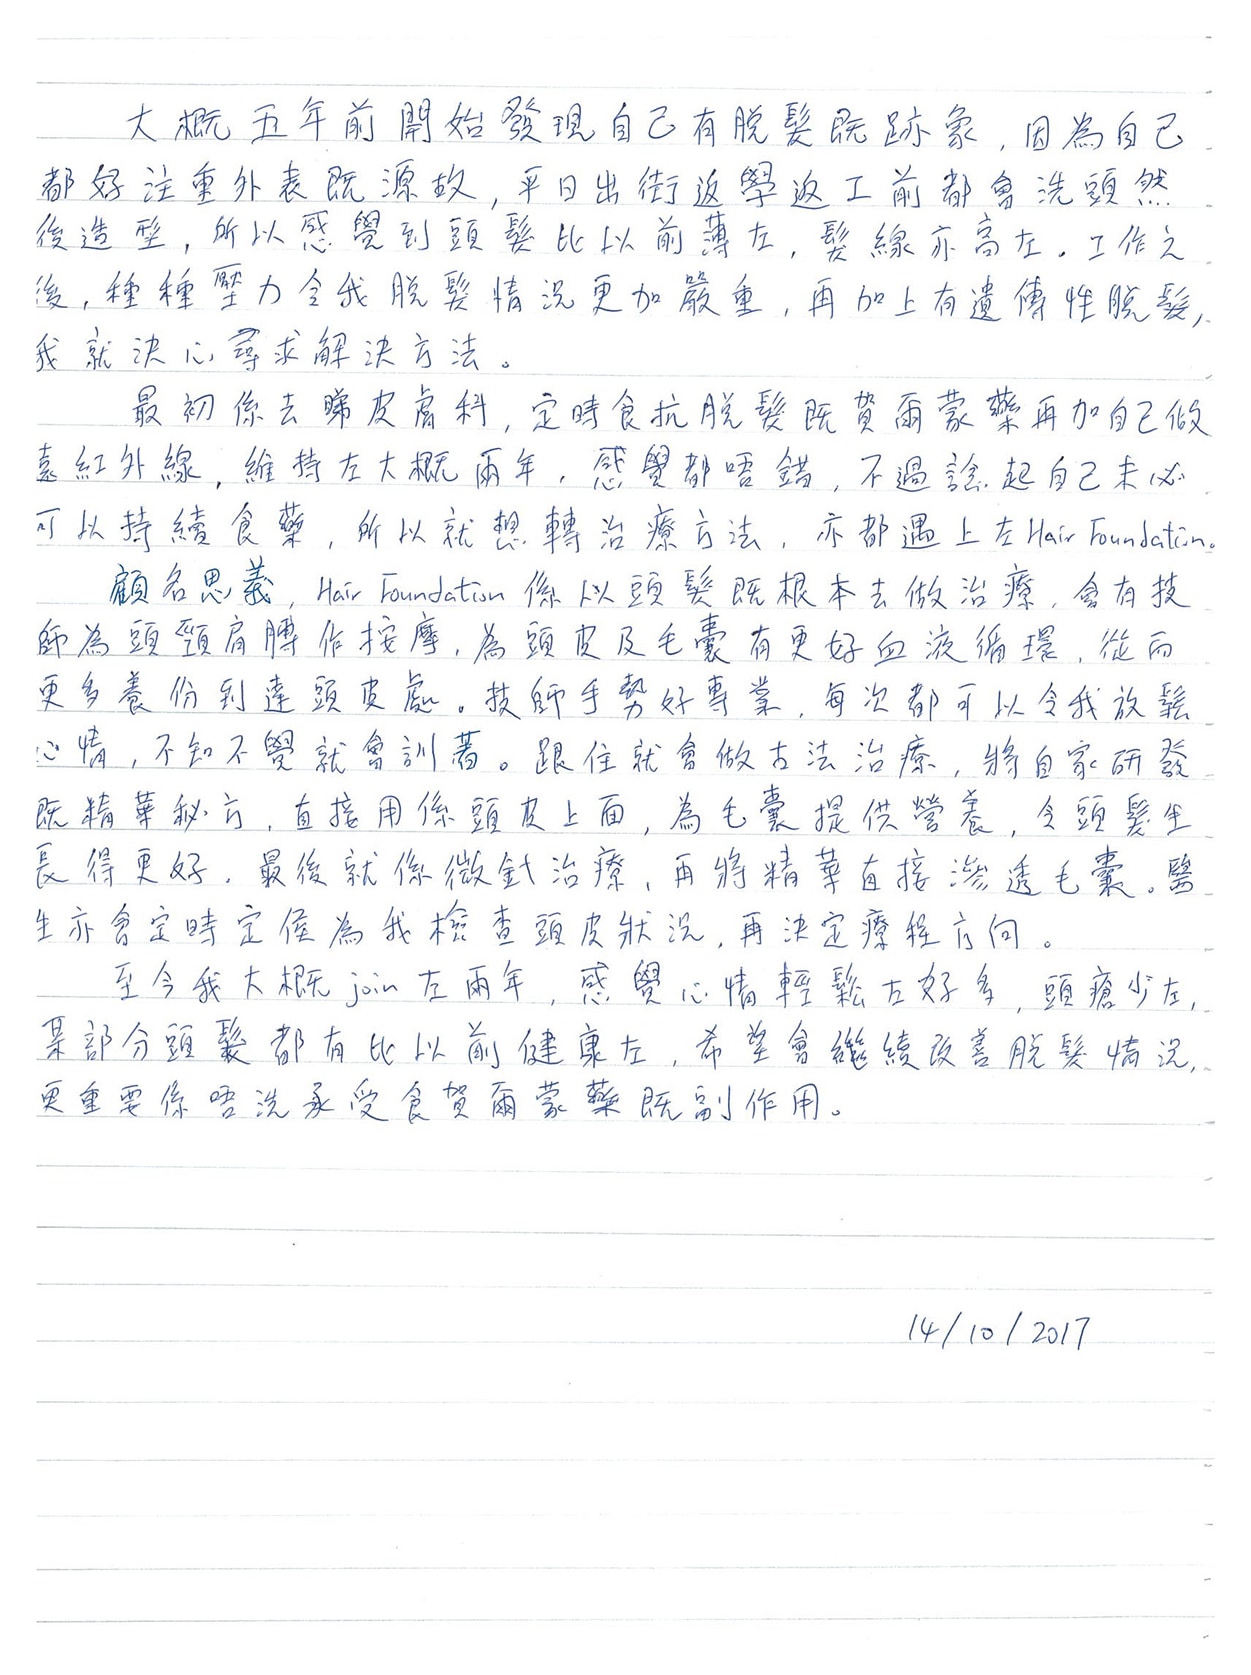 大概五年前開始發現自己有脫髮既跡象，因為自己
都好注重外表既源故，平日出街返學返工前都會洗頭然
後造型，所以感覺到頭髮比以前薄左，髮線亦高左。工作之
後，種種壓力令我脫髮情況更加嚴重，再加上有遺傳性脫髮，
我就決心尋求解決方法。
最初係去睇皮膚科，定時食抗脫髮既賀爾蒙藥再加自己做
遠紅外線，維持左大概兩年，感覺都唔錯，不過諗起自己未必
可以持續食藥，所以就想轉治療方法，亦都遇上左Hair Foundation。
顧名思義，Hair Foundation係以頭髮既根本去做治療，會有技
師為頭頸肩膊作按摩，為頭皮及毛囊有更好血液循環，從而
更多養份到達頭皮處。技師手勢好專業，每次都可以令我放鬆
心情，不知不覺就會訓著。跟住就會做古法治療，將自家研發
既精華秘方，直接用係頭皮上面，為毛囊提供營養，令頭髮生
長得更好，最後就係微針治療，再將精華直接滲透毛囊。醫
生亦會定時定侯為我檢查頭皮狀況，再決定療程方向。
至今我大概join左兩年，感覺心情輕鬆左好多，頭瘡少左，
某部分頭髮都有比以前健康左，希望會繼續改善脫髮情況，
更重要係唔洗承受食賀爾蒙藥既副作用。
14/10/2017